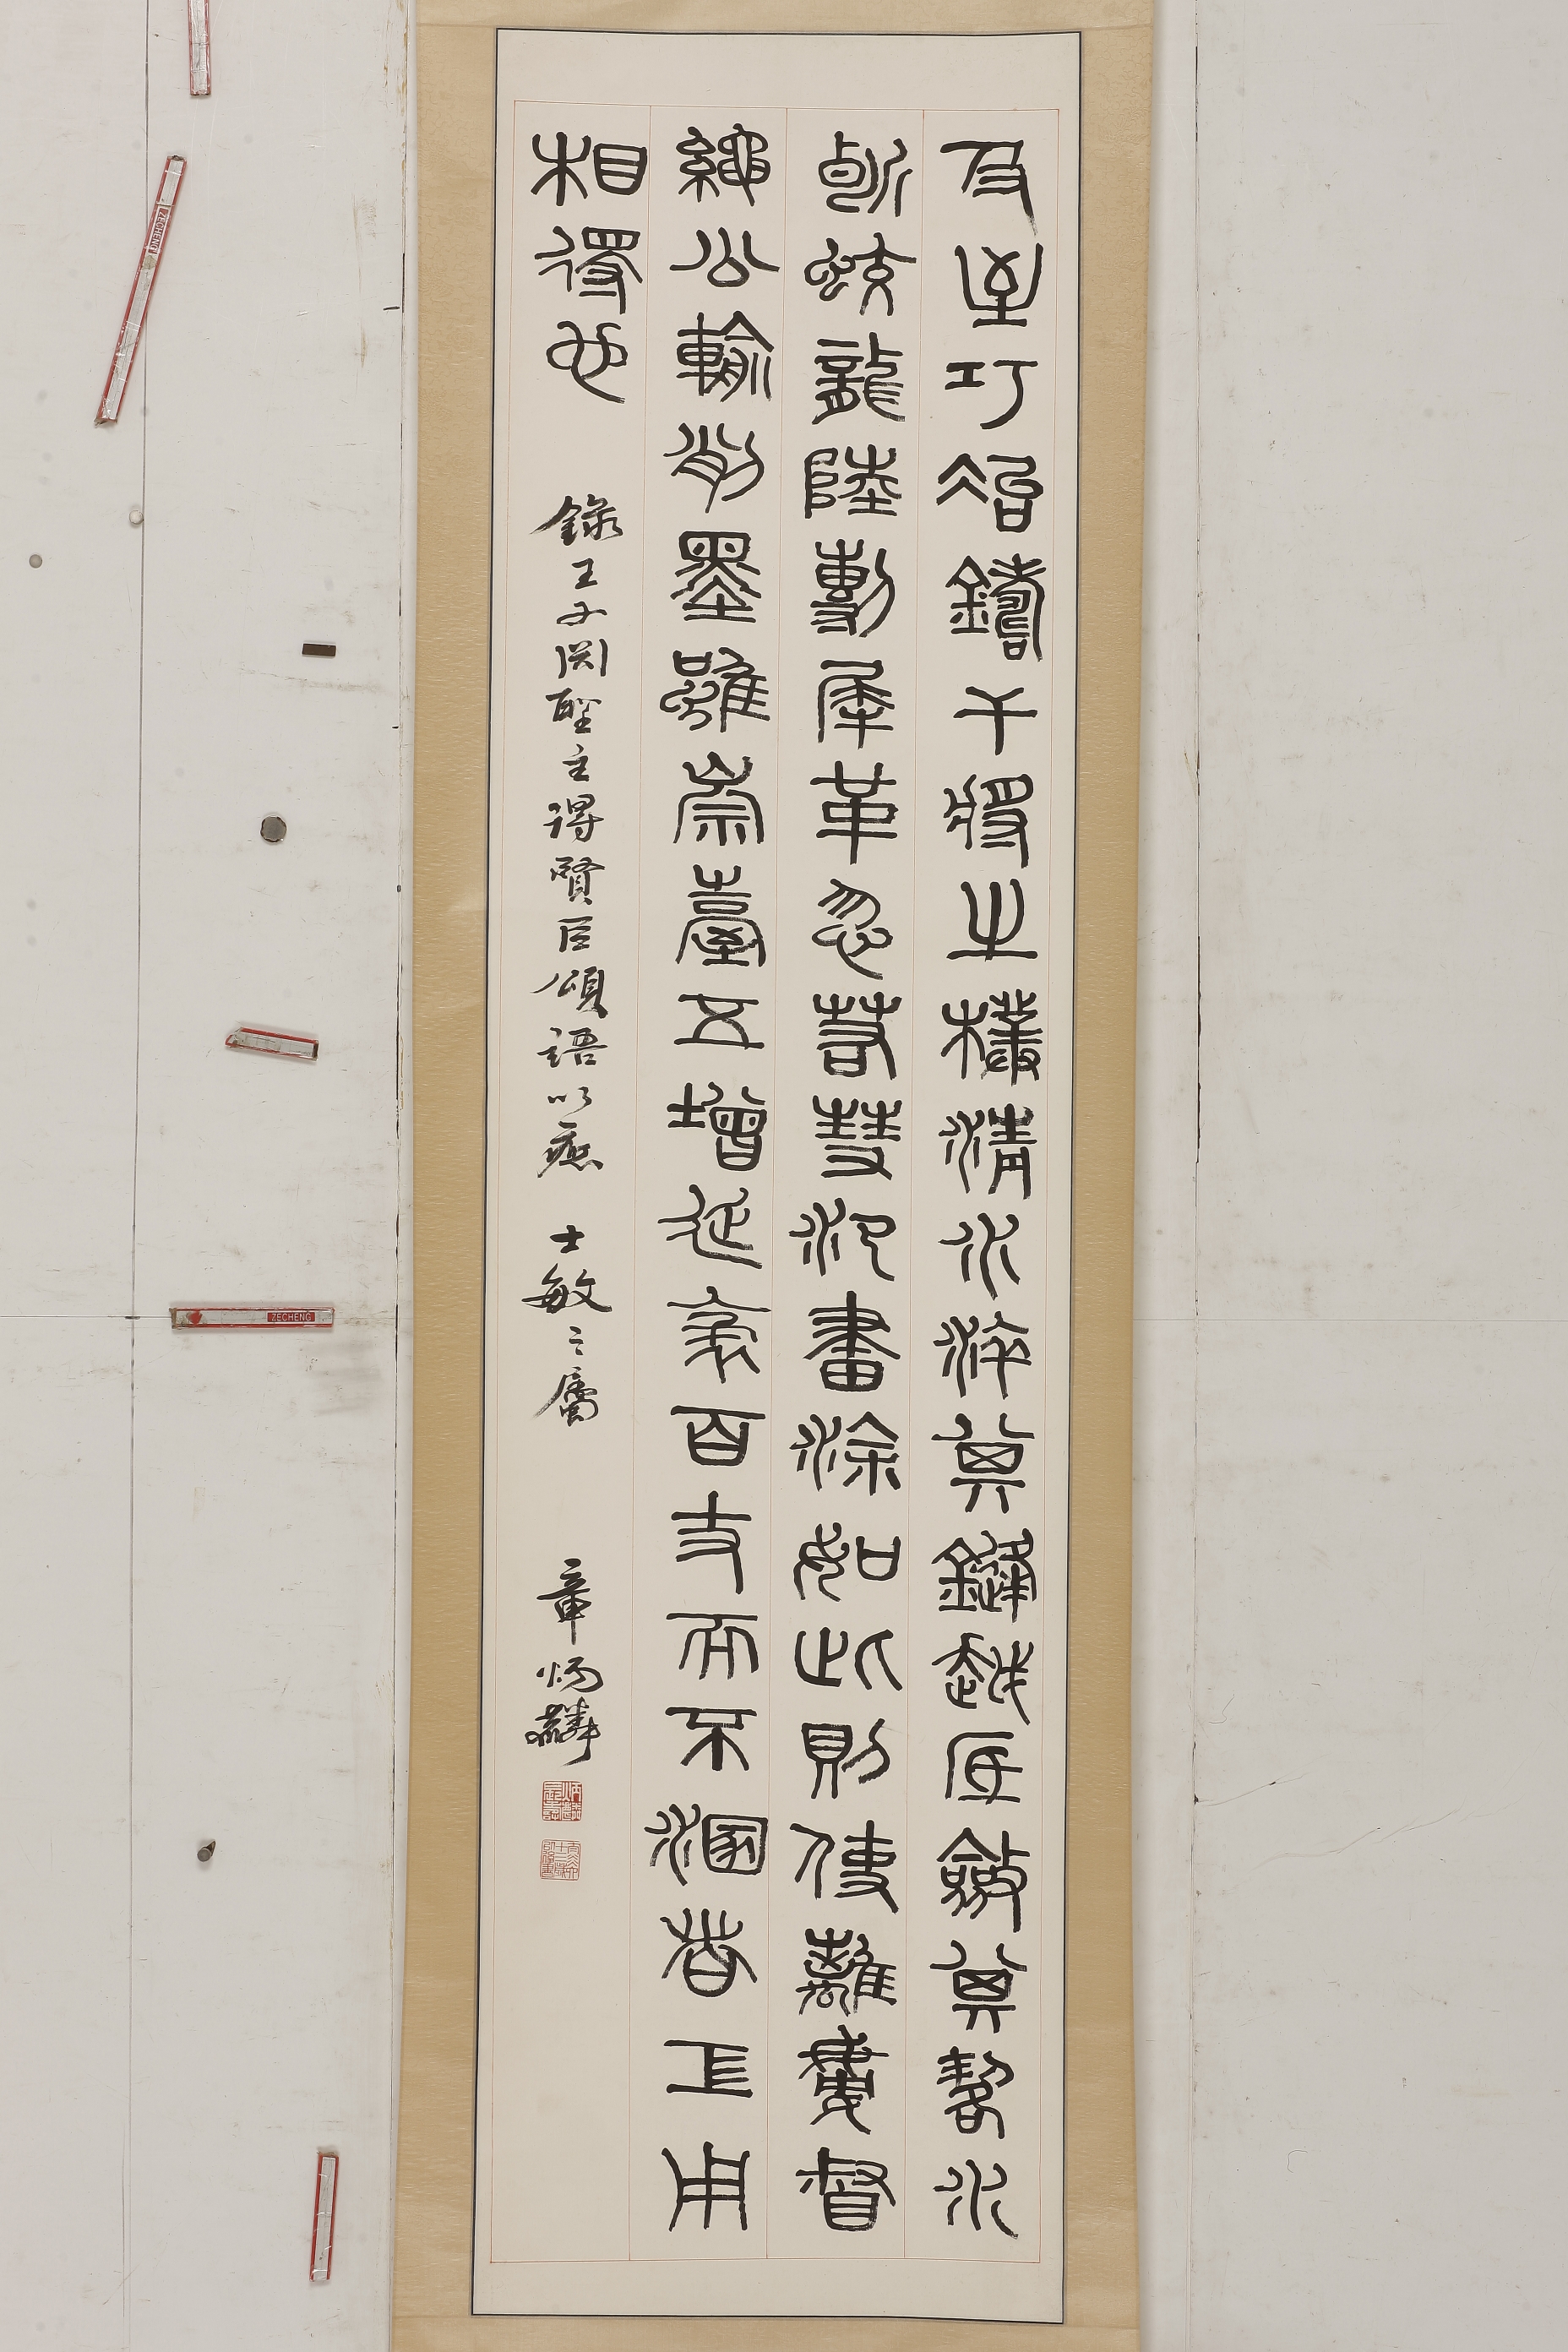 及至巧冶鑄干將之樸清水淬其鋒越砥斂其鍔水
斷蛟龍陸剸犀革忽若彗氾畫涂如此則使離婁督
繩公輸削墨雖崇臺五增延袤百丈而不溷者工用
相得也 錄王子淵聖主得賢臣頌語以應 士敏之屬 章炳麟
ZECHENG
ZECHENG